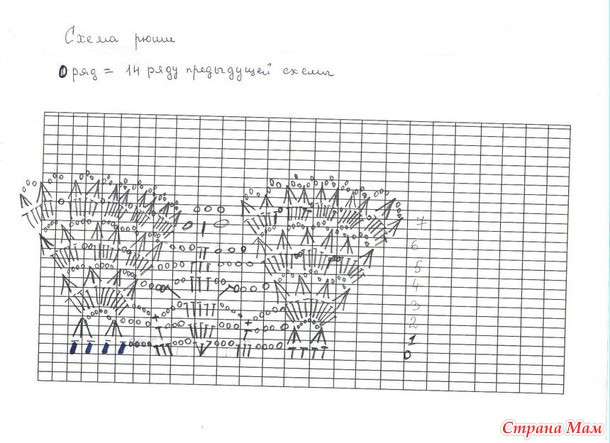 Схема рюши
0 ряд = 14 ряду предыдущей схемы
7
6
5
4
3
2
1
0
Страна Мам